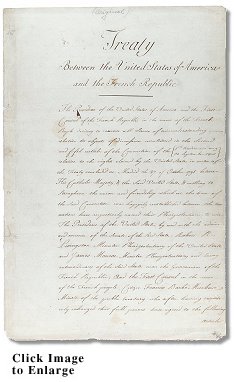 (Original)
Treaty
Between the United States of America
and the French Republic
The President of the United States of America and the First
Consul of the French Republic in the name of the French
People desiring to remove all Source of misunderstanding
relative to objects of discussion mentioned in the Second
and fifth articles of the Convention of the
relative to the rights claimed by the United States in virtue of
the Treaty concluded at Madrid the 27 of October 1795, between
His Catholic Majesty & the Said United States, & willing to
Strengthen the union and friendship which at the time of the
Said Convention was happily reestablished between the two
nations have respectively named their Plenipotentiaries to wit
The President of the United States, by and with the advice
and consent of the Senate of the Said States; Robert R.
Livingston Minister Plenipotentiary of the United States
and James Monroe Minister Plenipotentiary and Envoy
extraordinary of the Said States near the Government of the
French Republic; And the First Consul in the name
of the French people, Citizen Francis Barbé Marbois
Minister of the public treasury who after having respectively
exchanged their full powers have agreed to the following
articles
Click Image
to Enlarge